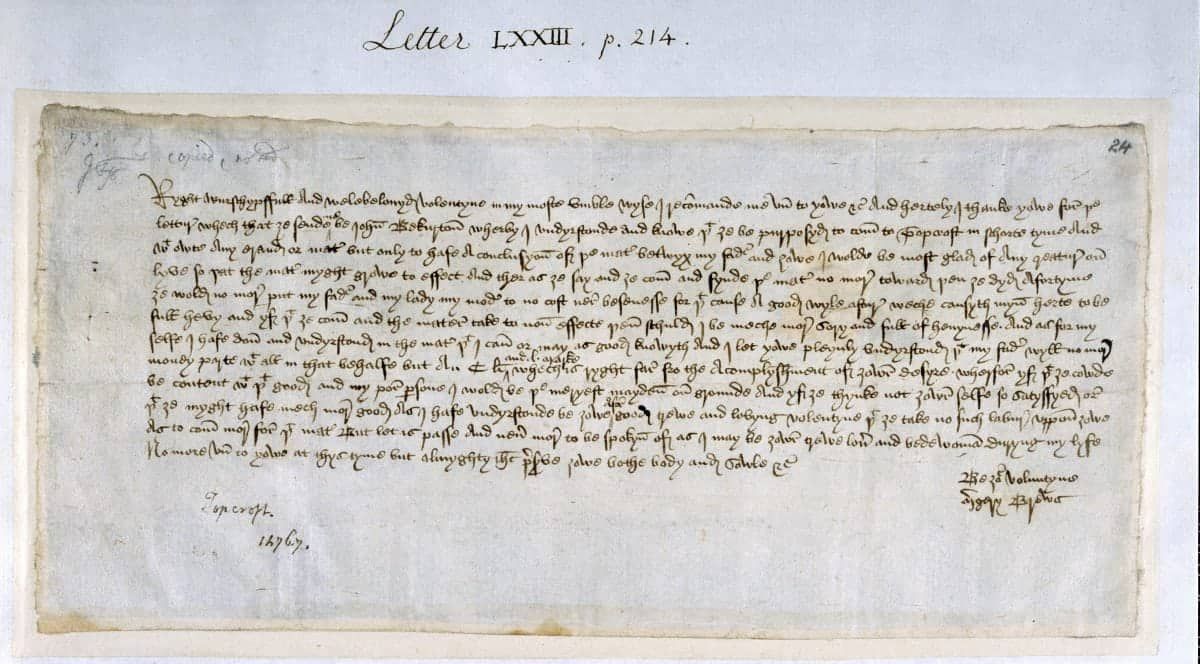 Letter LXXIII. p. 214.
24
73.
Ryght wurschypffull and welebelouyd Volentyne in my moste vmble wyse I recõmande me vn to yowe &c And hertely I thanke yowe for þe
lettur whech that ze sende me be John Bekurton wherby I vndyrstonde and knowe þt ze be purposyd to com to Topcroft in schorte tyme And
wt owte any erand or matr but only to hafe A conclusyon of þe matr betwyx my fadr and zowe I wolde be most glad of Any creatur on
lyve so þat the matr myght growe to effect And ther as ze say and ze com and fynde þe matr no mor toward þen ze dyd Afortyme
ze wold no mor put my fadr and my lady my modr to no cost ner besenesse for þt cause A good wyle aftur weche causyth myn herte to be
full hevy and yf þt ze com and the mater take to non effecte þen schuld I be meche mor sory and full of heuynesse. And as for my
selfe I hafe don and vndyrstond in the matr þt I can or may as good knowyth And I let yowe pleynly vndyrstond þt my fadr wyll no mor
money parte wt all in that behalfe but an C li and l marke whech is ryght far fro the Acomplyshment of zowr desyre wherfor yf þt ze cowde
be content wt þt good and my por persone I wold be þe meryest mayden on grounde And yf ze thynke not zowr selfe so satysfyed or
þt ze myght hafe mech mor good As I hafe vndyrstonde be zowe afor good trewe and lovyng volentyne þt ze take no such labur vppon zowe
As to com mor for þt matr But let is passe And neuer mor to be spokyn of as I may be zowr trewe lover and bedewoman duryng my lyfe
No more vn to yowe at thys tyme but almyghty Jhc preserve zowe bothe body and sowle &c
Be zor Voluntyne
Mergery Brews
Topcroft.
1476/7.